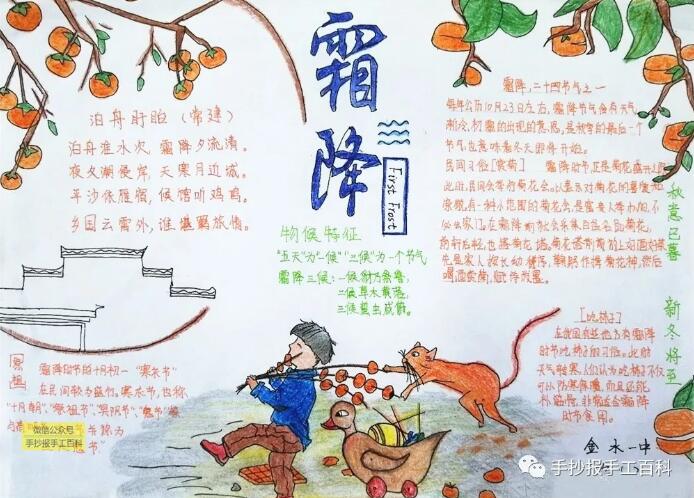 霜降
First Frost
泊舟盱眙（常建）
泊舟淮水次，霜降夕流清。
夜久潮侵岸，天寒月近城。
平沙依雁宿，候馆听鸡鸣。
乡国云霄外，谁堪羁旅情。
物候特征
"五天"为"一候" "三候"为一个节气
霜降三候：一候豺乃祭兽
二候草木黄落
三候蛰虫咸俯。
霜降，二十四节气之一
每年公历10月23日左右，霜降节气含有天气
渐冷、初霜的出现的意思，是秋季的最后一个
节气，也意味着冬天即将开始。
民间习俗[赏菊] 霜降时节，正是菊花盛开
此时民间会举行菊花会，以表示对菊花的喜爱
喝酒赏菊，赋诗泼墨。
秋意已暮
新冬将至
[吃柿子]
在我国有些地方有霜降
时节吃柿子的习俗。此时
天气寒，人们认为吃柿子不仅
可以防寒保暖，而且还能
补筋骨，非常适合霜降
时节食用。
霜降时节时十月初一"寒衣节"
在民间较为盛行。寒衣节，也称
"十月朝"、"祭祖节"、"冥阴节"、"鬼节"
微信公众号
手抄报手工百科
金水一中
手抄报手工百科